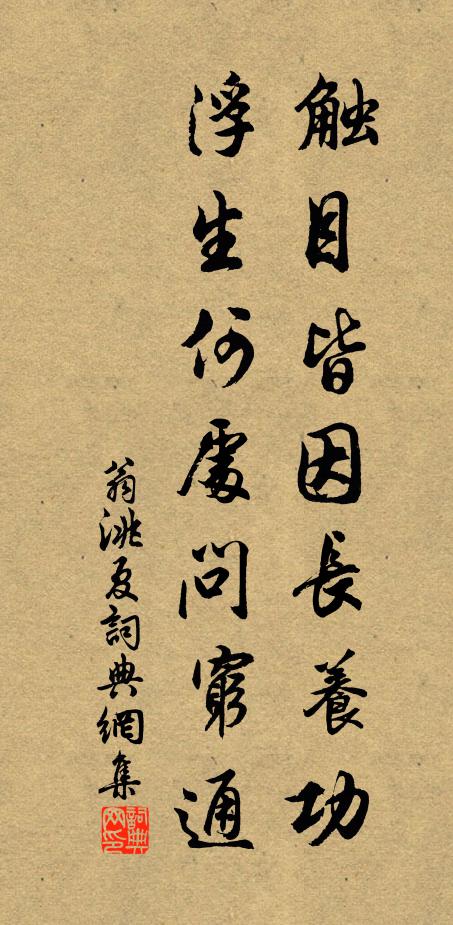 触目皆因長養功
浮生何處問窮通
翁洮夏詞典網集
詞典網印